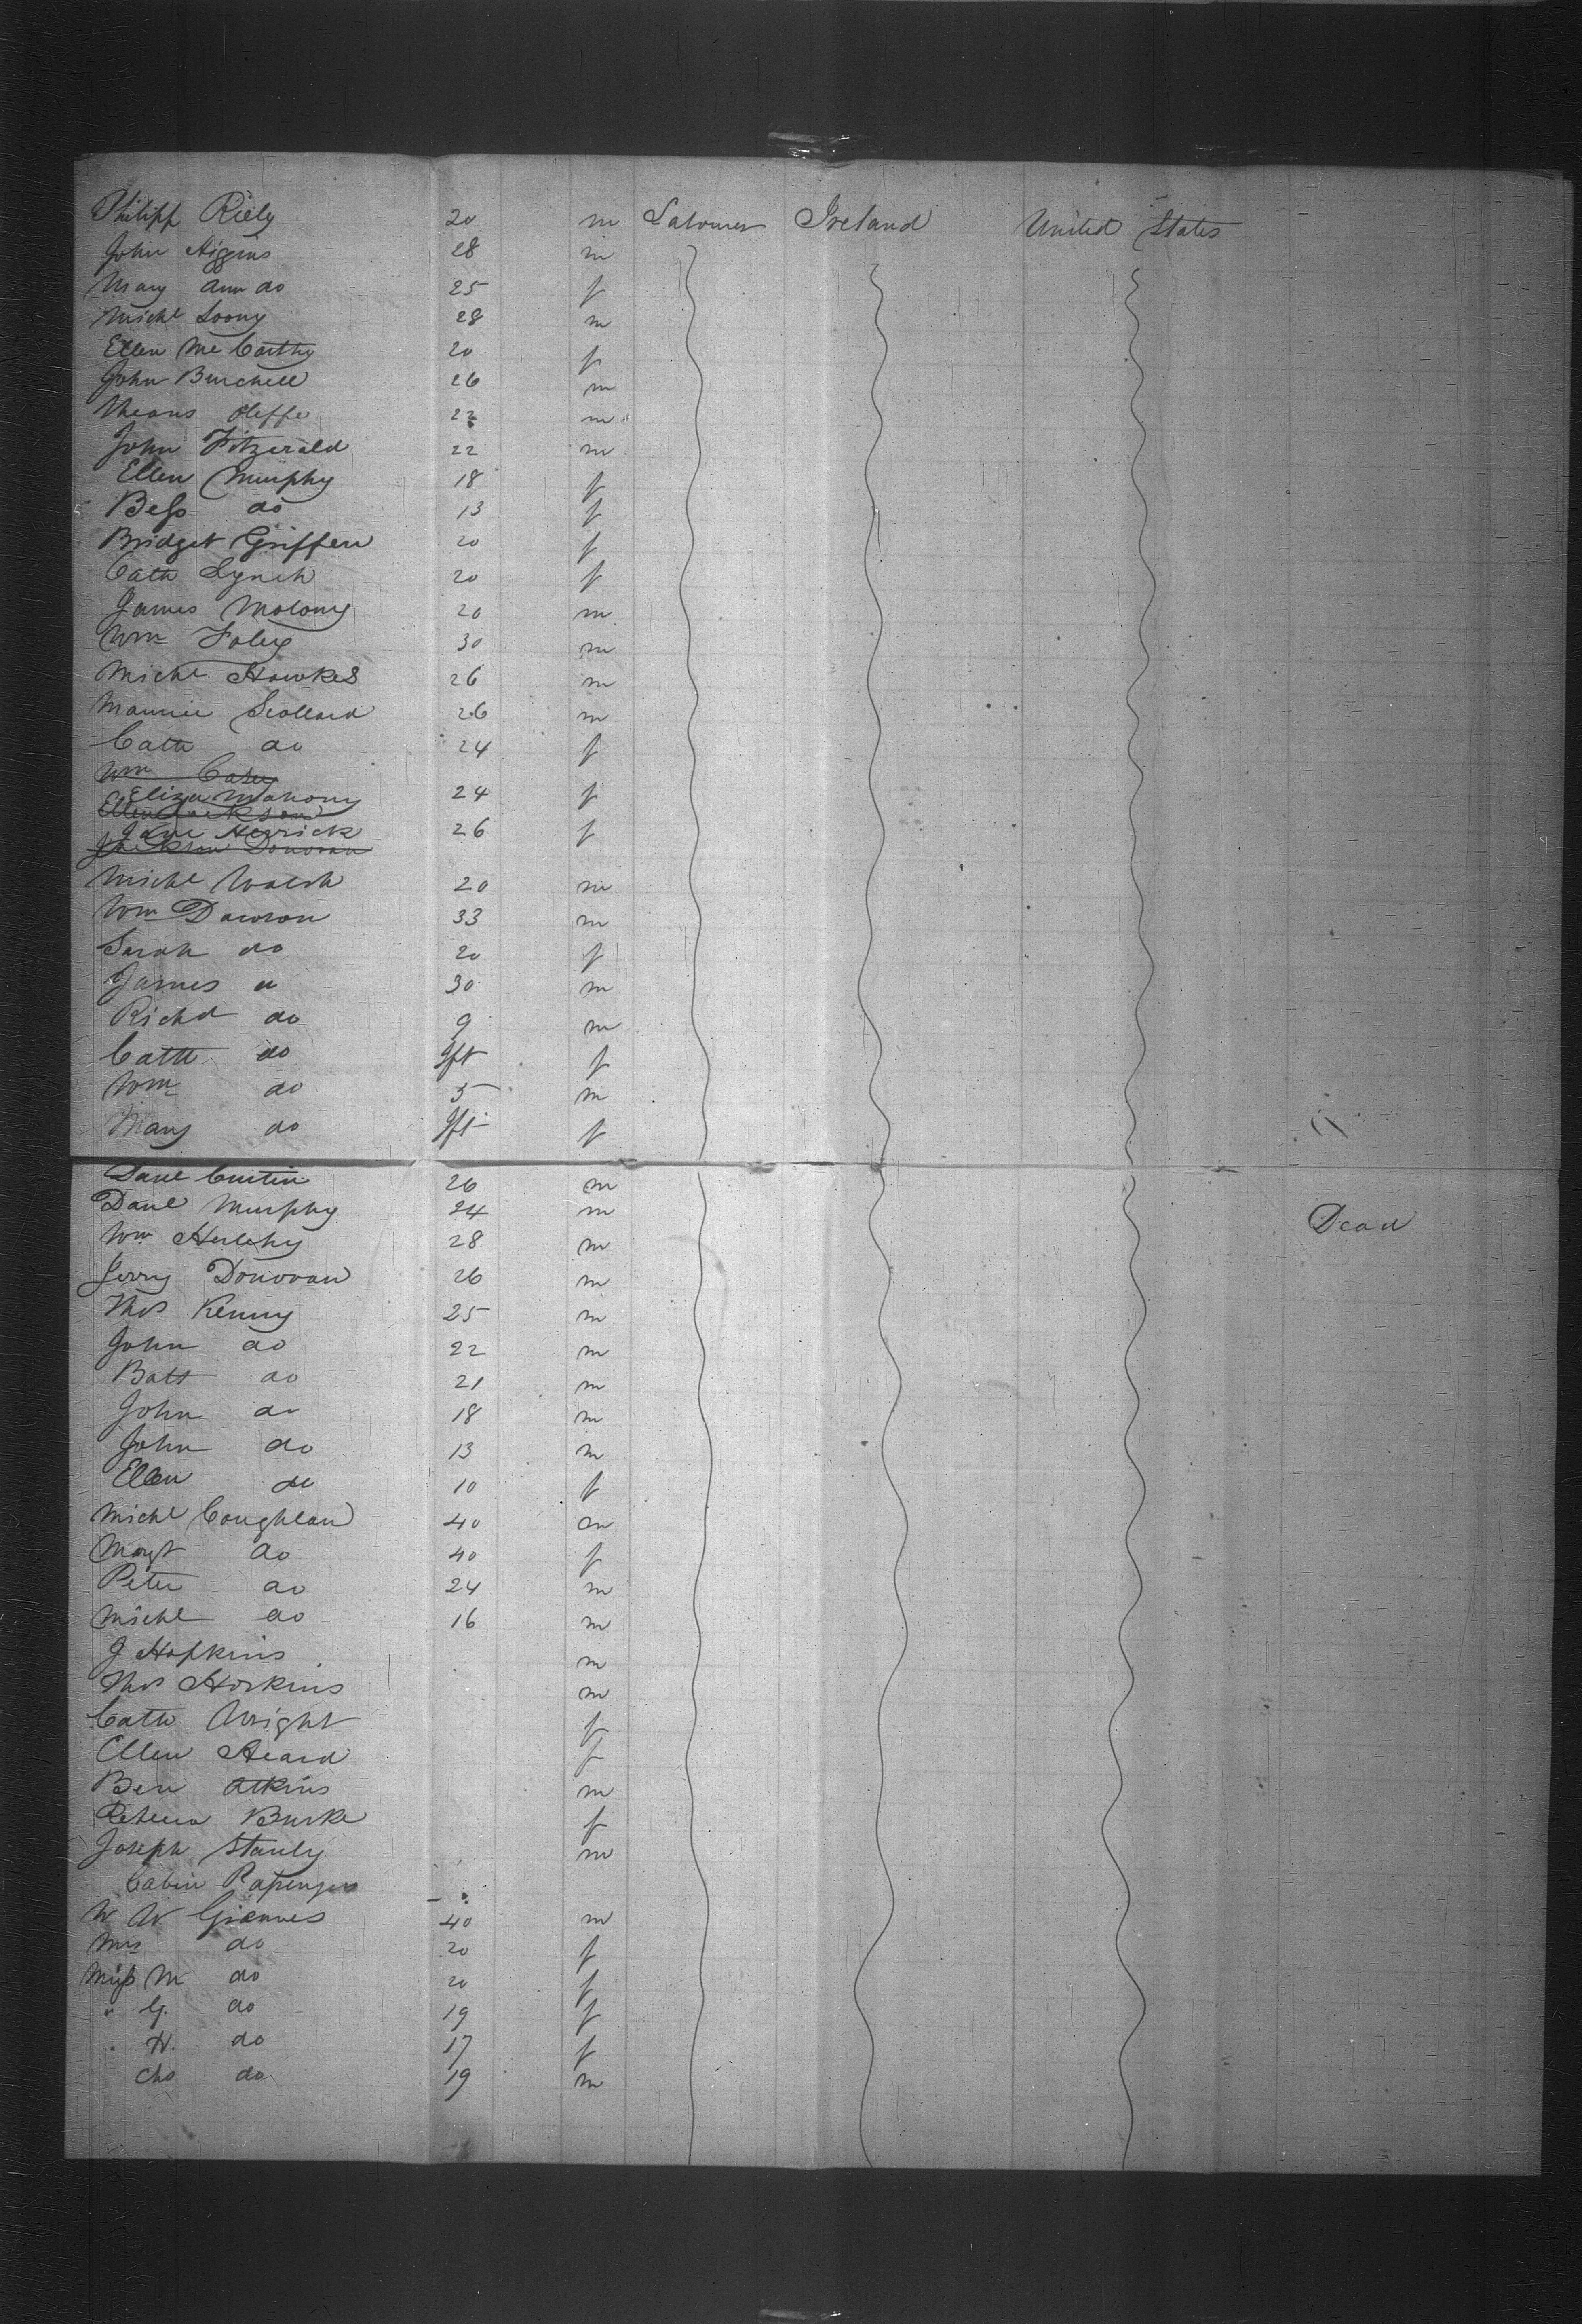 Philipp Riely 20 m Labourer Ireland United States
John Higgins 28 m
Mary Ann do 25 f
Michl Loony 28 m
Ellen McCarthy 20 f
John Burchell 26 m
22 m
John Fitzerald 22 m
Ellen Murphy 18 f
Bess do 13 f
Bridget Griffen 20 f
Cath Lynch 20 f
James Molony 20 m
Wm Foley 30 m
Michl Hawkes 26 m
Maurice Scollard 26 m
Cath do 24 f
Wm Casey
Eliza Mahony 24 f
Ellen Jackson
Jane Herrick 26 f
Donovan
Michl Walsh 20 m
Wm Dawson 33 m
Sarah do 20 f
James " 30 m
Richd do 9 m
Cath do Jft f
Wm do 5 m
Mary do Jft f
Danl Curtin 26 m
Danl Murphy 24 m Dead
Wm Herlehy 28 m
Jerry Donovan 26 m
Thos Kenny 25 m
John do 22 m
Batt do 21 m
John do 18 m
John do 13 m
Ellen do 10 f
Michl Coughlan 40 m
Margt do 40 f
Peter do 24 m
Michl do 16 m
J Hopkins m
Thos Horkins m
Cath Wright f
Ellen Heard f
Ben Atkins m
Rebecca Burke f
Joseph Stanly m
Cabin Passengers
W W 40 m
Mrs do 20 f
Miss M do 20 f
" G. do 19 f
" H. do 17 f
Chs do 19 m